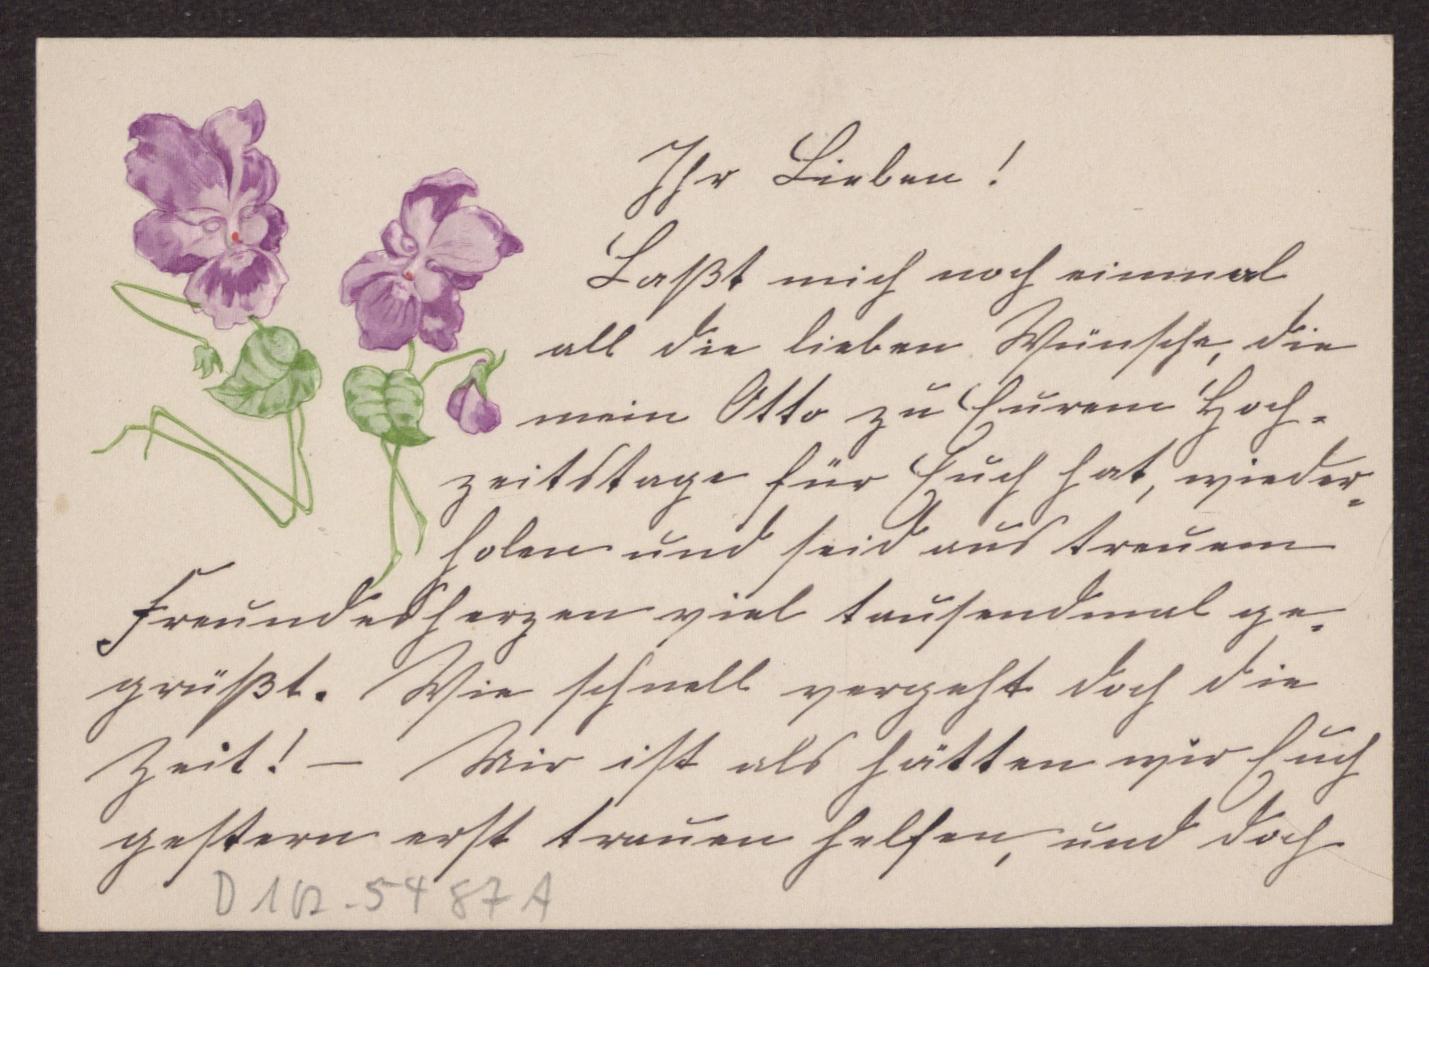 Ihr Lieben!
Laßt mich noch einmal
all die lieben Wünsche, die
mein Otto zu Eurem Hoch-
zeitstage für Euch hat, wieder-
holen und seid aus treuem
Freundesherzen viel tausendmal ge-
grüßt. Wie schnell vergeht doch die
Zeit! — Mir ist als hätten wir Euch
gestern erst trauen helfen, und doch
D 162-5487 A